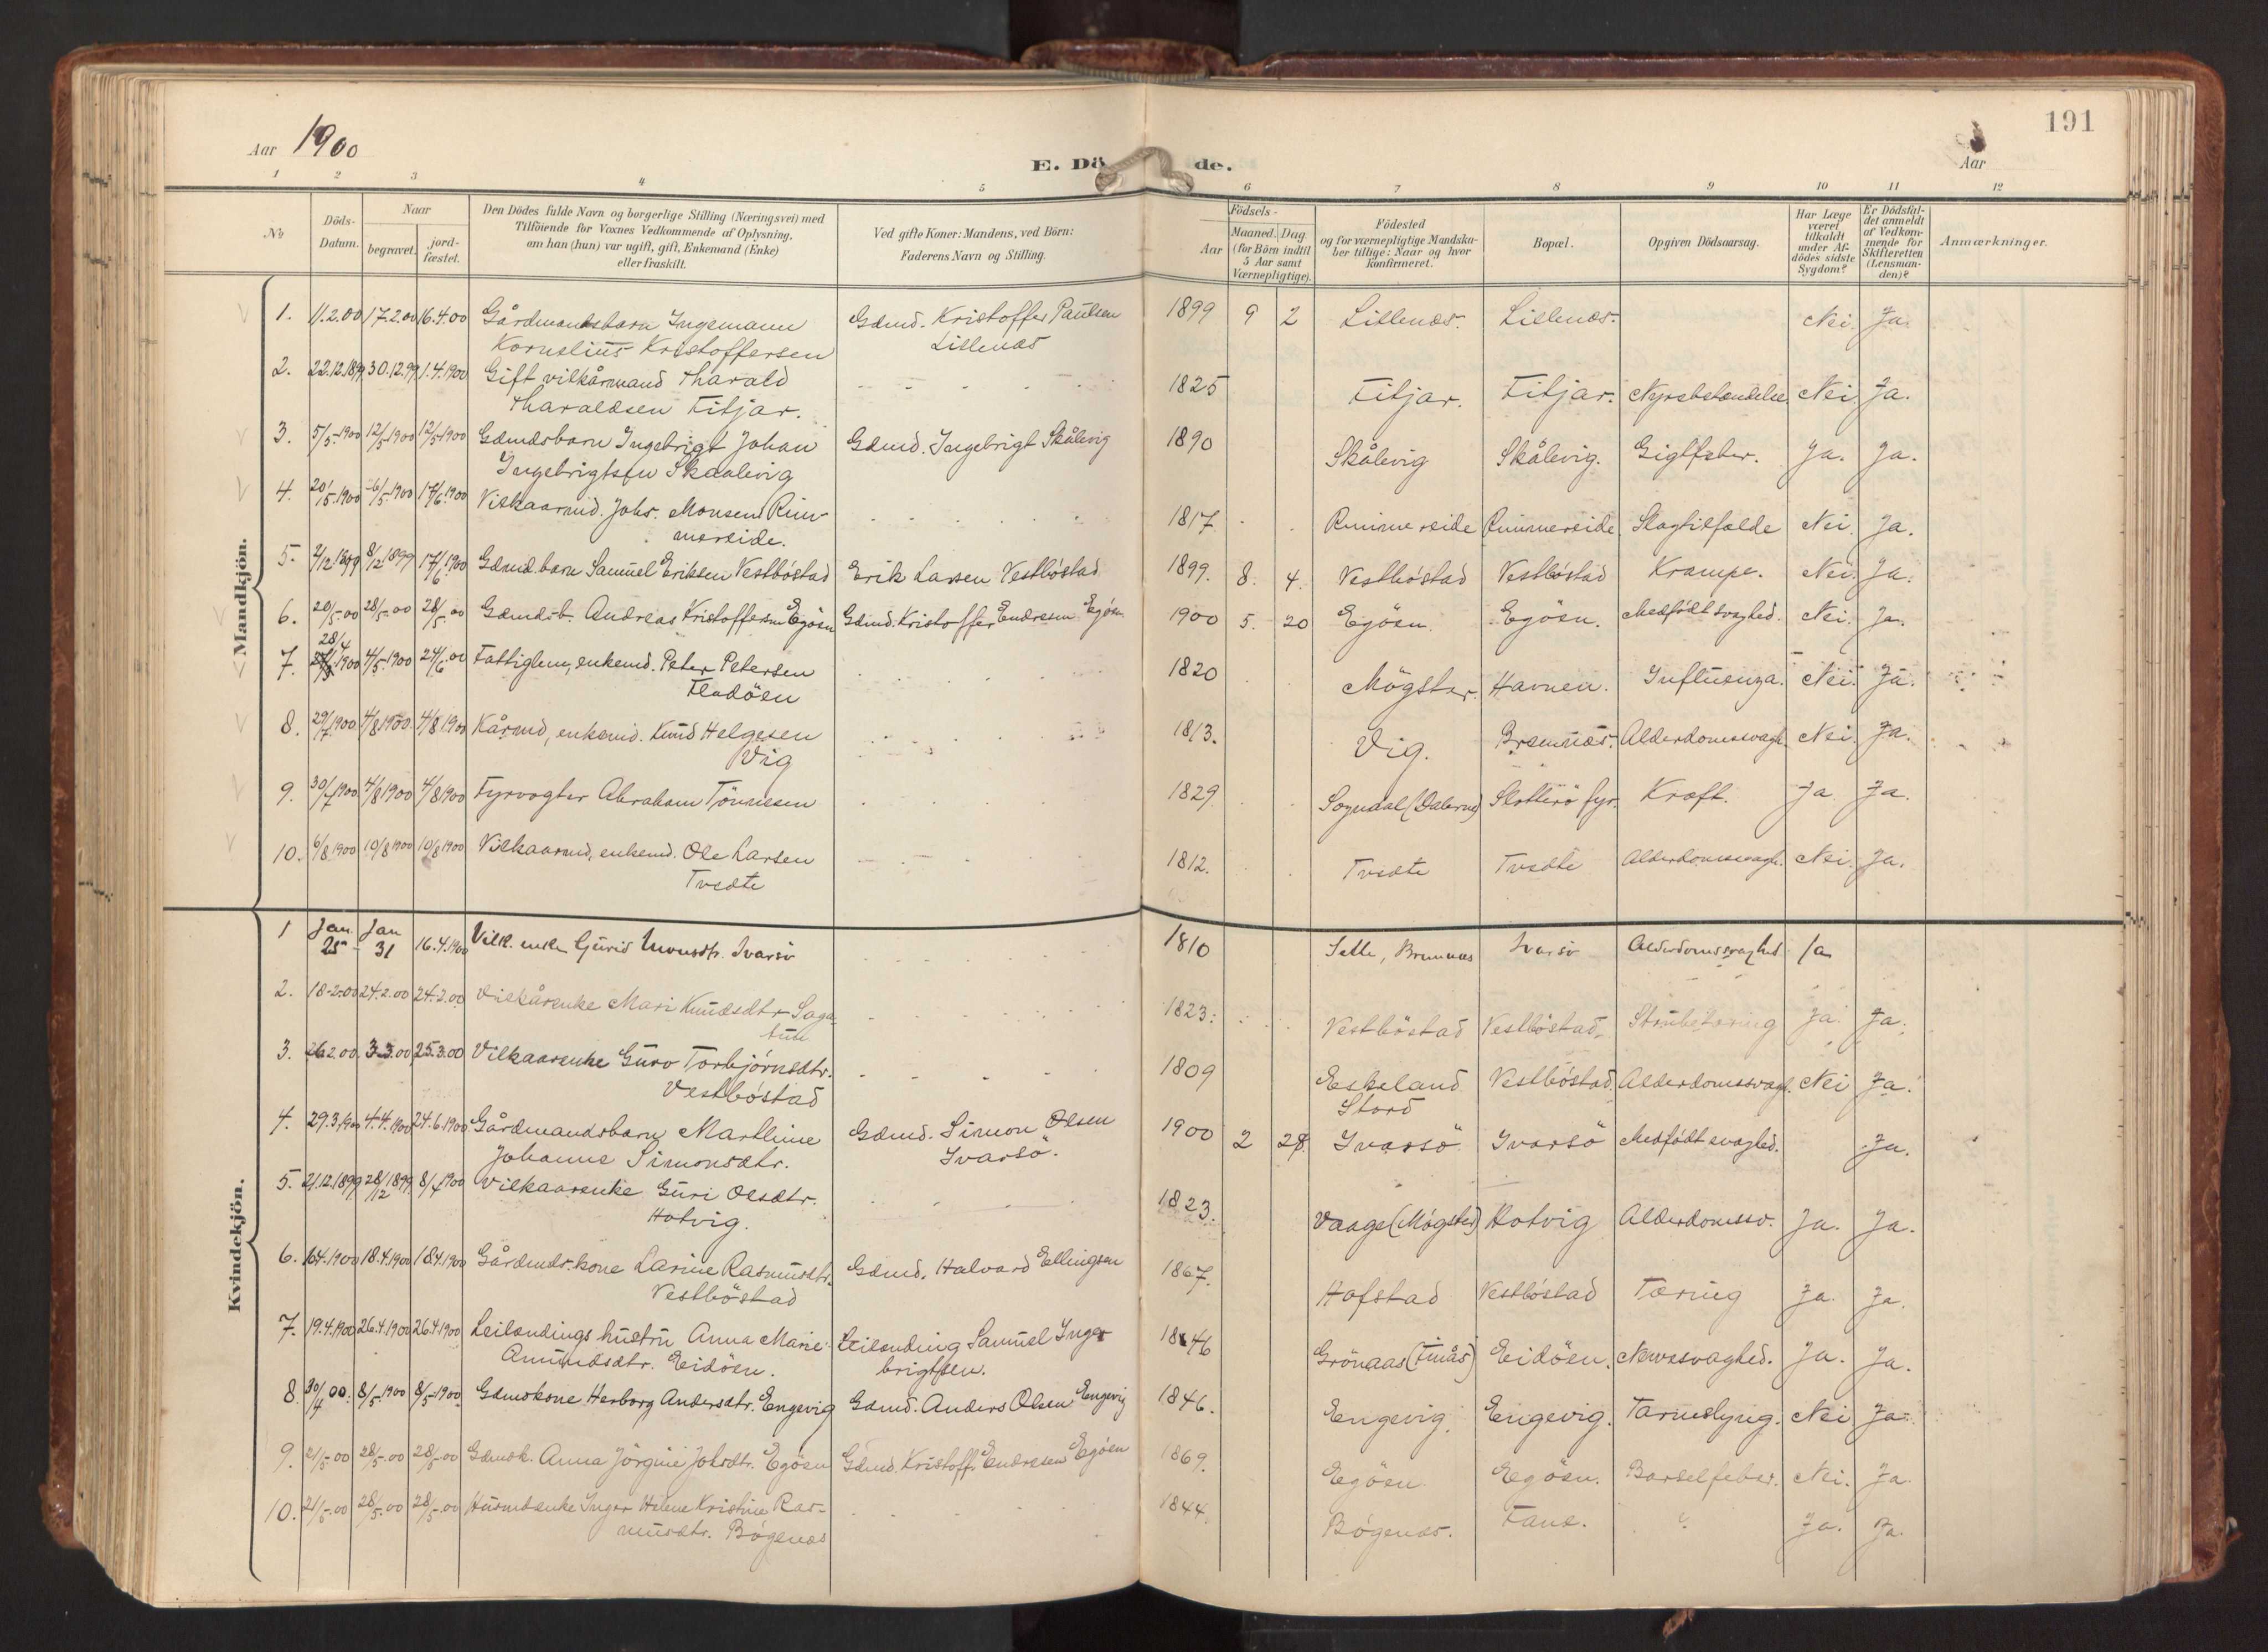 Aar 1900
E. Dö de.
Aar
191
1 2 3 4 5 6 7 8 9 10 11 12
№
Döds-
Datum.
Naar
begravet.
jord-
fæstet.
Den Dödes fulde Navn og borgerlige Stilling (Næringsvei) med
Tilföiende for Voxnes Vedkommende af Oplysning,
om han (hun) var ugift, gift, Enkemand (Enke)
eller fraskilt.
Ved gifte Koner: Mandens, ved Börn:
Faderens Navn og Stilling.
Födsels-
Aar
Maaned. Dag.
(for Börn indtil
5 Aar samt
Værnepligtige).
Födested
og for værnepligtige Mandska-
ber tillige: Naar og hvor
konfirmeret.
Bopæl.
Opgiven Dödsaarsag.
Har Læge
været
tilkaldt
under Af-
dödes sidste
Sygdom?
Er Dödsfal-
det anmeldt
af Vedkom-
mende for
Skifteretten
(Lensman-
den)?
Anmærkninger.
Mandkjön.
1. 11.2.00 17.2.00 16.4.00 Gårdmandsbarn Ingemann Gdmd. Kristoffer Paulsen 1899 9 2 Lillenæs. Lillenæs. Nei. Ja.
Kornelius Kristoffersen Lillenæs
2. 22.12.1899 30.12.99 1.4.1900 Gift vilkårmand Harald 1825 Fitjar. Fitjar. Nyrebetændelse. Nei. Ja.
Haraldsen Fitjar.
3. 5/5-1900 12/5-1900 12/5-1900 Gdmdsbarn Ingebrigt Johan Gdmd. Ingebrigt Skålevig 1890 Skålevig Skålevig. Gigtfeber. Ja. Ja.
Ingebrigtsen Skaalevig
4. 20/5.1900 26/5.1900 17/6.1900 Vilkaarmd. Johs. Monsen Rim- 1817. Rimmereide Rimmereide Slagtilfælde Nei. Ja.
mereide.
5. 2/12 1899 8/12 1899 17/6 1900 Gdmd.barn Samuel Eriksen Vestbøstad Erik Larsen Vestbøstad 1899. 8. 4. Vestbøstad Vestbøstad Krampe. Nei. Ja.
6. 20/5-00 28/5-00 28/5.00 Gdmds.b. Andreas Kristoffersen Egøen Gdmd. Kristoffer Endresen Egøen 1900 5. 20 Egøen. Egøen. Medfødt svaghed. Nei. Ja.
28/4
7. 1900 4/5-1900 24/6.00 Fattiglem, enkemd. Peter Petersen 1820 Møgster. Havnen. Influenza. Nei. Ja.
Flodøen
8. 29/7.1900 4/8.1900. 4/8.1900 Kårmd, enkemd. Knud Helgesen 1813. Vig. Bremnæs. Alderdomssvagh. Nei. Ja.
Vig
9. 30/7.1900 4/8 1900 4/8 1900 Fyrvogter Abraham Tönnesen 1829 Sogndal (Dalerne) Slotterö fyr. Kræft. Ja. Ja.
10. 6/8.1900 10/8 1900 10/8 1900 Vilkaarmd, enkemd. Ole Larsen 1812. Tvedte Tvedte Alderdomssvagh. Nei. Ja.
Tvedte
Kvindekjön.
1 Jan 25 Jan 31 16.4.1900 Vilk. enke Guris Monsdtr. Ivarsö 1810 Sælle, Bremnæs Ivarsö Alderdomssvaghed Ja
2. 18-2.00 24.2.00 24.2.00 Vilkårenke Mari Knudsdtr Saga- 1823. Vestbøstad Vestbøstad. Strubetæring Ja. Ja.
tun
3. 26.2.00. 3.3.00 25.3.00 Vilkaarenke Guro Torbjørnsdtr. 1809 Eskeland Vestbøstad. Alderdomssvagh. Nei Ja.
Vestbøstad Stord
4. 29.3.1900 4.4.1900 24.6.1900 Gårdmandsbarn Marthine Gdmd. Simon Olsen 1900 2 28. Ivarsö Ivarsö Medfødt svaghed. Ja.
Johanne Simonsdtr. Ivarsö.
5. 21.12.1899 28/12 1899 8/4 1900 Vilkaarenke Guri Olsdtr. 1823. Vaage (Møgster) Hotvig Alderdomssv. Ja. Ja.
Hotvig.
6. 10.4.1900 18.4.1900 18.4.1900 Gårdmds.kone Larine Rasmusdtr. Gdmd. Halvard Ellingsen 1867. Hofstad Vestbøstad Tæring Ja. Ja.
Vestbøstad
7. 19.4.1900 26.4.1900 26.4.1900 Leilændings hustru Anna Marie Leilending Samuel Inge- 1846 Grönaas (Finås) Eidøen. Nervesvaghed. Ja. Ja.
Amundsdtr. Eidøen. brigtsen.
8. 30/4 00. 8/5-1900 8/5-1900 Gdmdkone Herborg Andersdtr. Engevig Gdmd. Anders Olsen Engevig 1846. Engevig. Engevig. Tarmslyng. Nei Ja.
9. 21/5-00 28/5-00 28/5-00 Gdmdk. Anna Jørgine Johsdtr. Egøen Gdmd. Kristoff. Endresen Egøen 1869. Egøen. Egøen. Barselfeber. Nei. Ja.
10. 21/5-00 28/5-00 28/5-00 Husmdsenke Inger Helene Kristine Ras- 1844. Bøgenæs. Fane. Ja. Ja.
musdtr. Bøgenæs